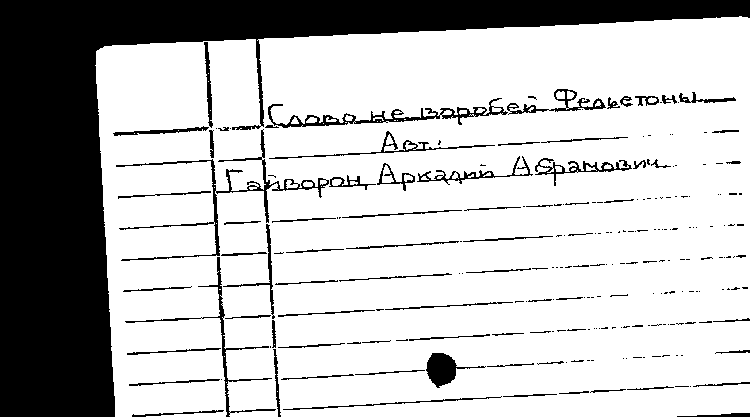 Слово не воробей Фельетоны
Авт.:
Гайворон, Аркадий Абрамович